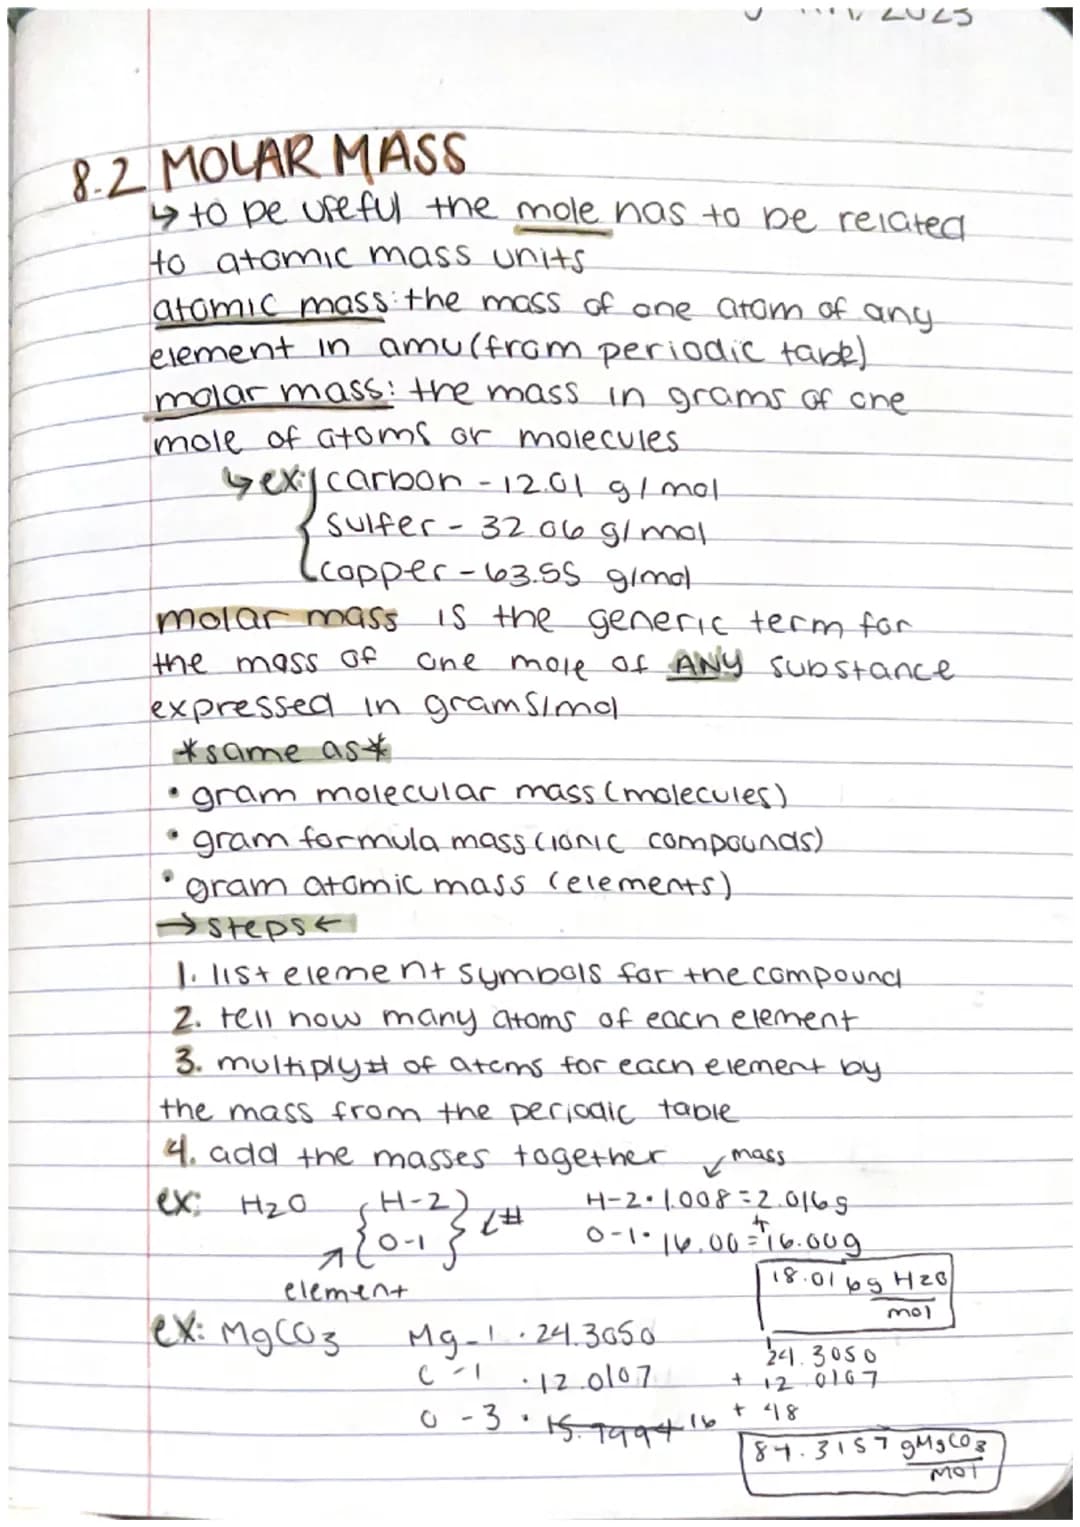 2023
8.2 MOLAR MASS
↳ to be useful the mole has to be related
to atomic mass units
atomic mass: the mass of one atom of any
element in amu (from periodic table)
molar mass: the mass in grams of one
mole of atoms or molecules
↳ ex: carbon - 12.01 g/mol
sulfer - 32.06 g/mol
copper - 63.55 g/mol
molar mass is the generic term for
the mass of one mole of ANY substance
expressed in grams/mol
*same as*
• gram molecular mass (molecules)
• gram formula mass (ionic compounds)
• gram atomic mass (elements)
→ steps ←
1. list element symbols for the compound
2. tell how many atoms of each element
3. multiply # of atoms for each element by
the mass from the periodic table
4. add the masses together
mass
ex: H2O { H-2 } # H-2 • 1.008 = 2.016g
{ O-1 } O-1 • 16.00 = 16.00g
+
element
18.016g H2O
mol
ex: MgCO3 Mg-1 • 24.3050
24.3050
C-1 • 12.0107 + 12.0107
O-3 • 15.9994 16 + 48
84.3157 gMgCO3
mol